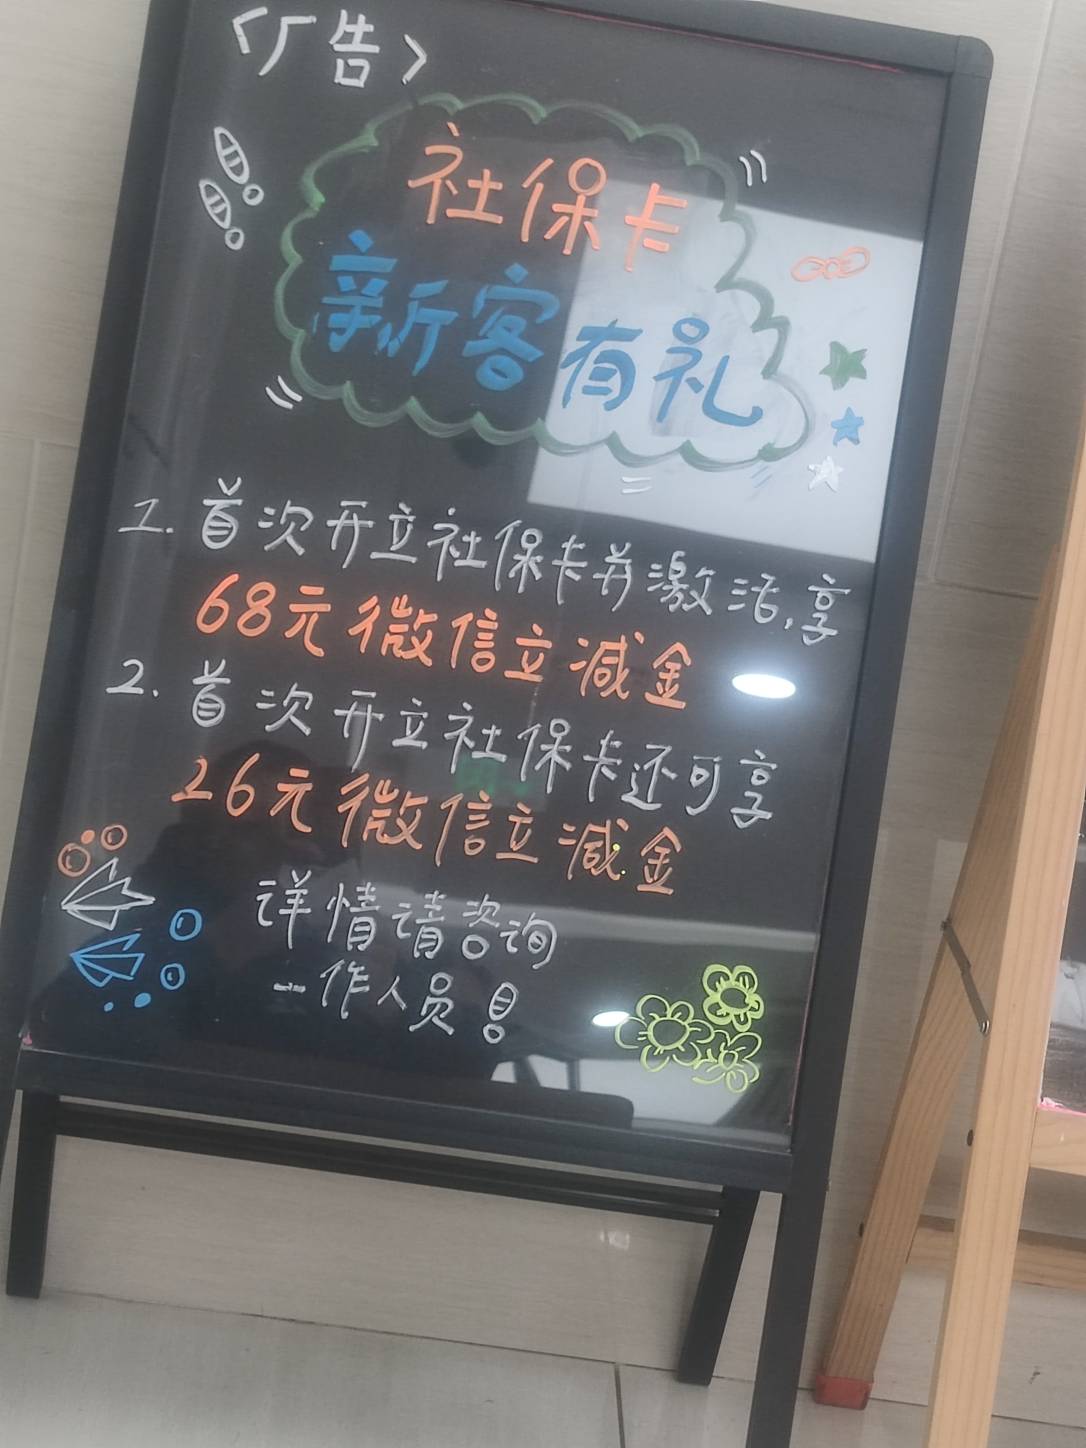 <广告>
社保卡
新客有礼
1. 首次开立社保卡并激活,享
68元微信立减金
2. 首次开立社保卡还可享
26元微信立减金
详情请咨询
工作人员!